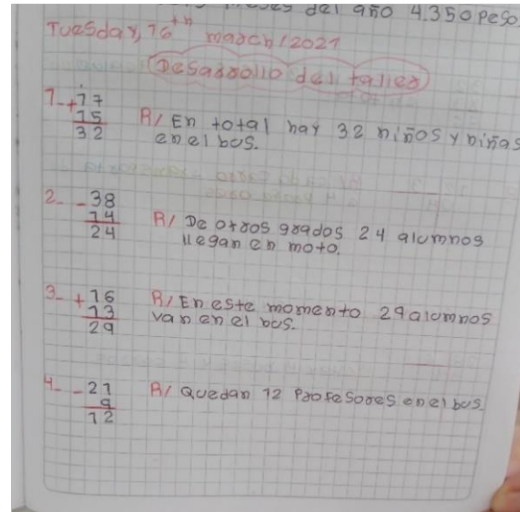 meses del año 4.350 peso
Tuesday, 16th march/2021
Desarrollo del taller
1- +17
15
32
R/ En total hay 32 niños y niñas
en el bus.
2- -38
14
24
R/ De otros grados 24 alumnos
llegan en moto.
3- +16
13
29
R/ En este momento 29 alumnos
van en el bus.
4- -21
9
12
R/ Quedan 12 profesores en el bus.